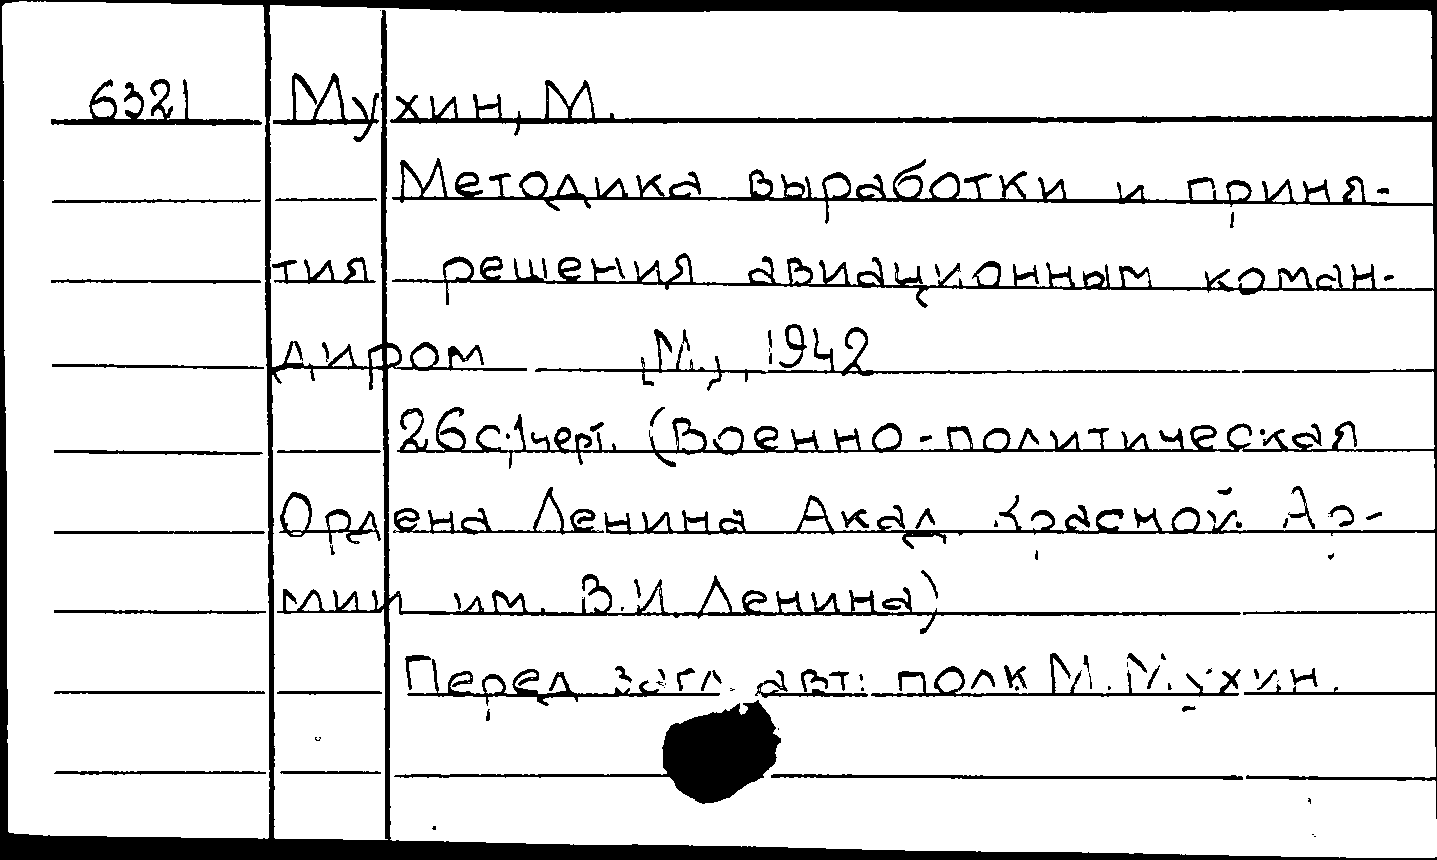 6321 Мухин, М.
Методика выработки и приня-
тия решения авиационным коман-
диром [М.], 1942
26 с. 1 черт. (Военно-политическая
Ордена Ленина Акад. Красной Ар-
мии им. В.И. Ленина)
Перед загл. авт: полк М. Мухин.